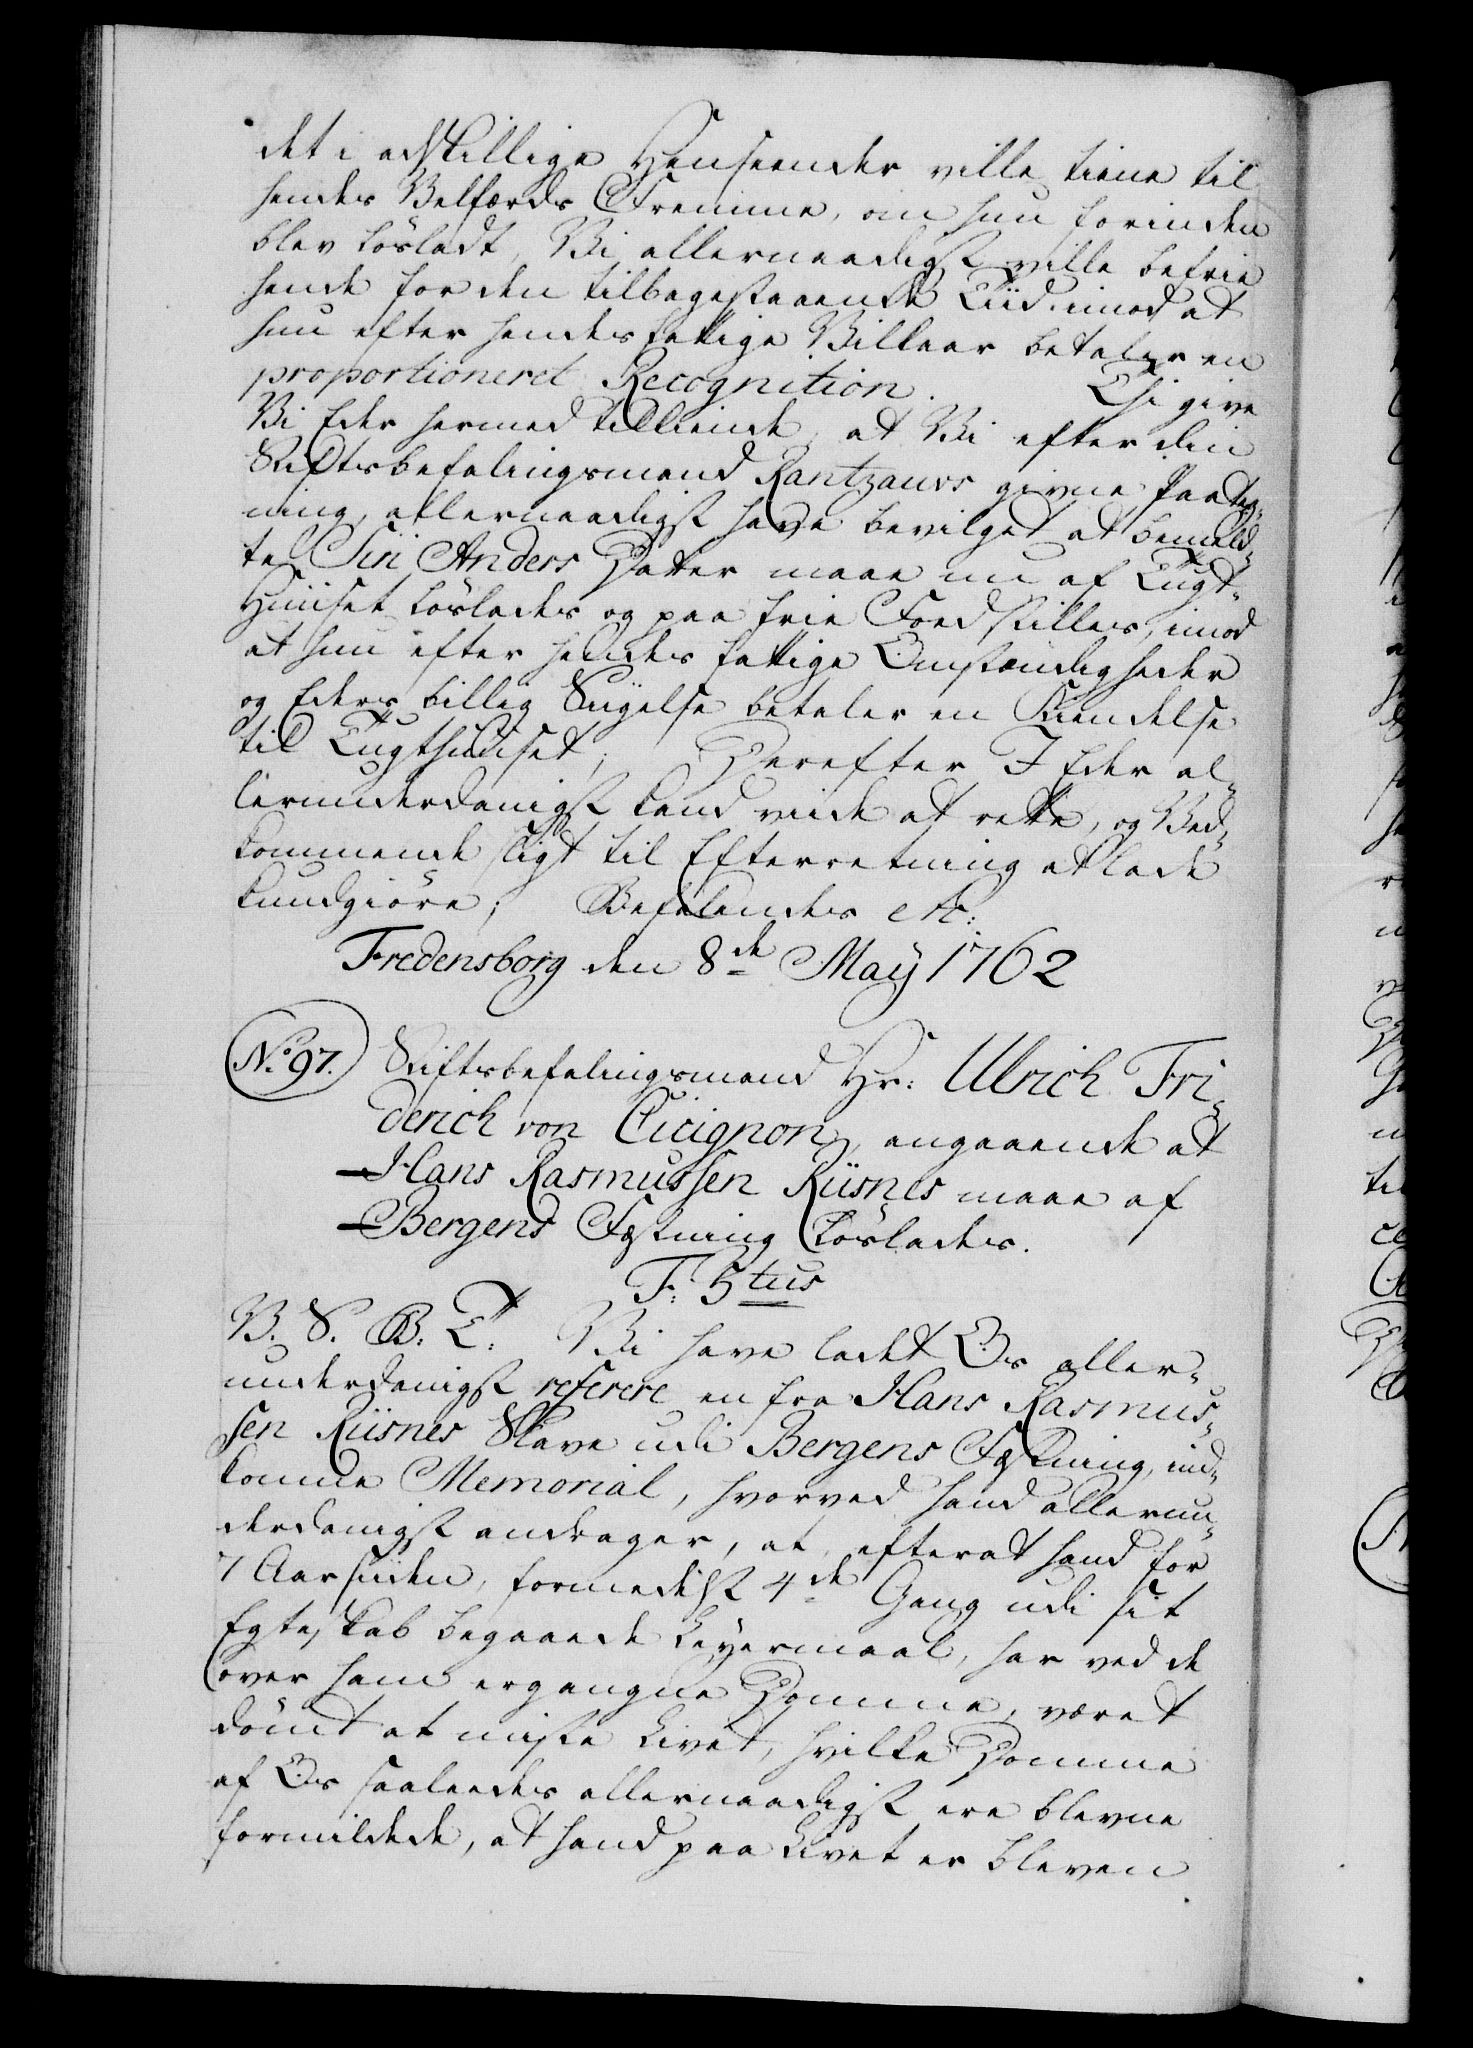 det i adskillige Henseender ville tiene til
hendes Velfærds Fremme, om hun forinden
blev løsladt, Vi allernaadigst ville befrie
hende for den tilbagestaaende Tiid imod at
hun efter hendes fattige Villkaar betaler en
proportioneret Recognition. Thi give
Vi Eder hermed tilkiende, at Vi efter din
Stiftsbefalingsmand Rantzaus givne Paateg-
ning, allernaadigst have bevilget at bemeld-
te Siri Anders Datter maae nu af Tugt-
Huuset løslades og paa frie Foed stilles, imod
at hun efter hendes fattige Omstændigheder
og Eders billig Sÿgelse betaler en Kiendelse
til Tugthuuset; Derefter I Eder al-
lerunderdanigst kand viide at rette, og Ved-
kommende sligt til Efterretning at lade
kundgiøre; Befalendes etc:
Fredensborg den 8de Maÿ 1762
No. 97. Stiftsbefalingsmand Hr: Ulrich Fri-
derich von Cicignon, angaaende at
Hans Rasmussen Riisnes maae af
Bergens Fæstning løslades.
F: 5tus
V. S. B: T: Vi have ladet Os aller-
underdanigst referere en fra Hans Rasmus-
sen Riisnes Slave udi Bergens Fæstning, ind-
komne Memorial, hvorved hand allerun-
derdanigst andrager, at efterat hand for
7 Aar siiden, formedelst 4de Gang udi sit
Egteskab begaaede Leÿermaal, har ved de
over ham ergangne Domme, været
dømt at miste Livet, hvilke Domme
af Os saaleedes allernaadigst ere blevne
formildede, at hand paa Livet er bleven